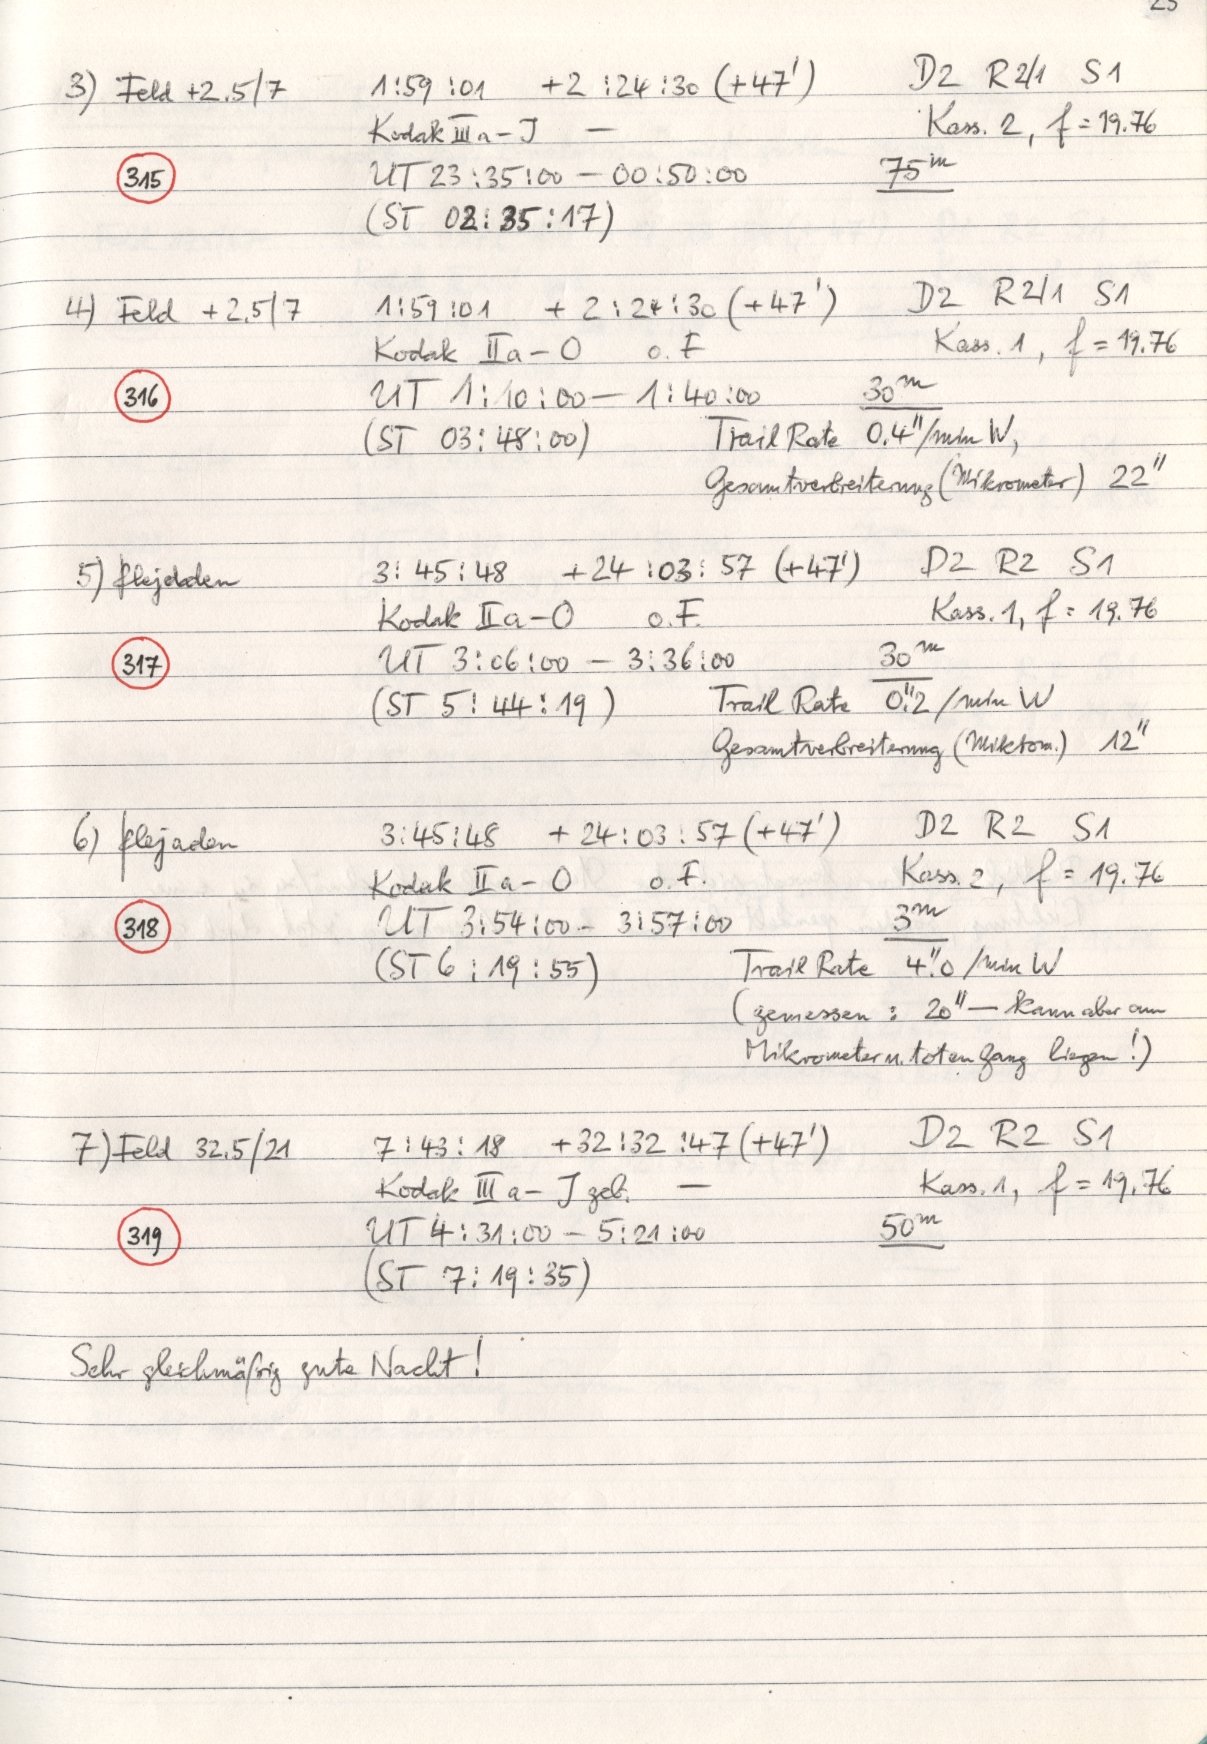 3) Feld +2.5/7 1:59:01 +2:24:30 (+47') D2 R2/1 S1
Kodak IIIa-J — Kass. 2, f = 19.76
315 UT 23:35:00 – 00:50:00 75m
(ST 02:35:17)
4) Feld +2.5/7 1:59:01 +2:24:30 (+47') D2 R2/1 S1
Kodak IIa-O o.F Kass. 1, f = 19.76
316 UT 1:10:00 – 1:40:00 30m
(ST 03:48:00) Trail Rate 0.4"/min W,
Gesamtverbreiterung (Mikrometer) 22"
5) Plejaden 3:45:48 +24:03:57 (+47') D2 R2 S1
Kodak IIa-O o.F. Kass. 1, f = 19.76
317 UT 3:06:00 – 3:36:00 30m
(ST 5:44:19) Trail Rate 0".2/min W
Gesamtverbreiterung (Mikrom.) 12"
6) Plejaden 3:45:48 +24:03:57 (+47') D2 R2 S1
Kodak IIa-O o.F. Kass. 2, f = 19.76
318 UT 3:54:00 – 3:57:00 3m
(ST 6:19:55) Trail Rate 4".0/min W
(gemessen: 20" – kann aber am
Mikrometer u. toten Gang liegen!)
7) Feld 32.5/21 7:43:18 +32:32:47 (+47') D2 R2 S1
Kodak IIIa-J geb. — Kass. 1, f = 19.76
319 UT 4:31:00 – 5:21:00 50m
(ST 7:19:35)
Sehr gleichmäßig gute Nacht!